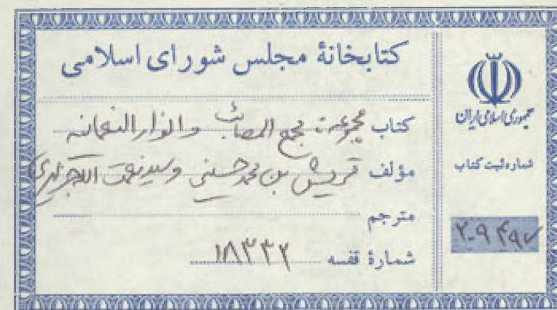 کتابخانهٔ مجلس شورای اسلامی
کتاب مجموعه: مجمع المصائب والنوار النعمانیه
مؤلف قریش بن محمد حسینی و سید نعمت الله جزایری
مترجم
شمارهٔ قفسه ۱۸۳۳۲
جمهوری اسلامی ایران
شماره ثبت کتاب
۲۰۹۴۹۷